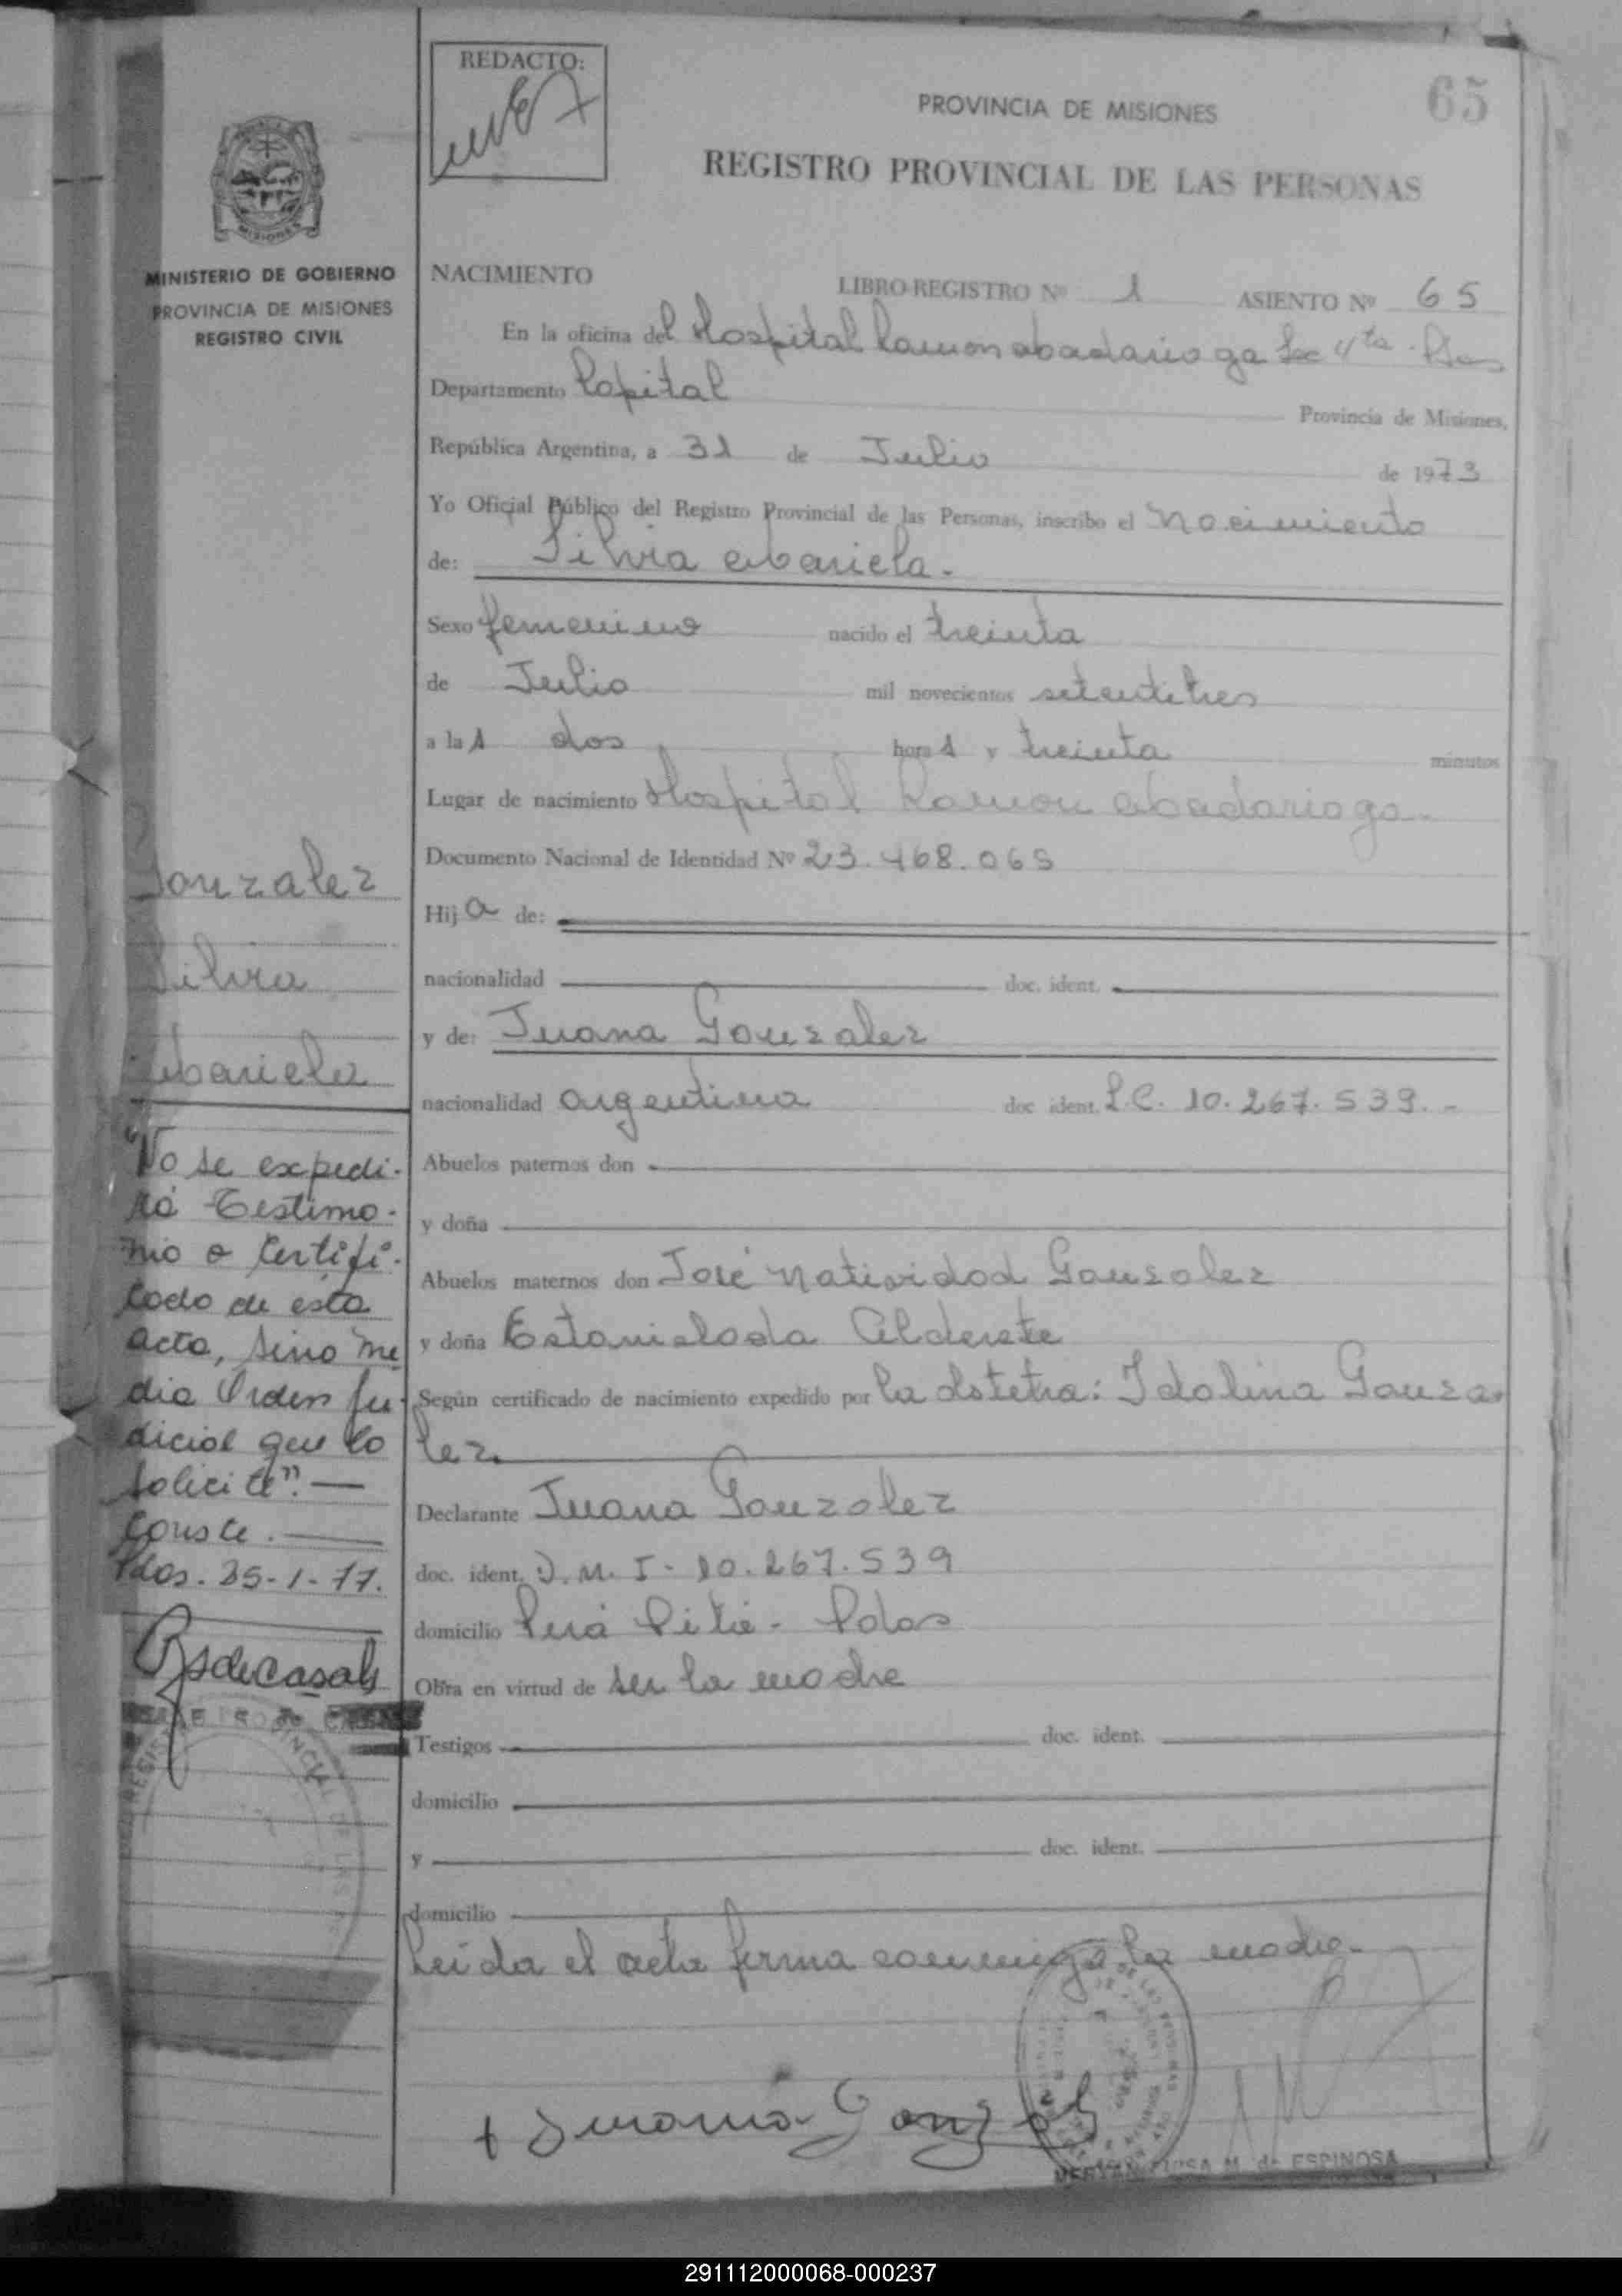 REDACTO:
65
PROVINCIA DE MISIONES
REGISTRO PROVINCIAL DE LAS PERSONAS
MISIONES
MINISTERIO DE GOBIERNO
PROVINCIA DE MISIONES
REGISTRO CIVIL
NACIMIENTO
LIBRO-REGISTRO Nº 1 ASIENTO Nº 65
En la oficina del Hospital Ramon Madariaga Sec 4ta. Pdas
Departamento Capital Provincia de Misiones,
República Argentina, a 31 de Julio de 1973
Yo Oficial Público del Registro Provincial de las Personas, inscribo el Nacimiento
de: Silvia Mariela.
Sexo femenino nacido el treinta
de Julio mil novecientos setentitres
a las dos horas y treinta minutos
Lugar de nacimiento Hospital Ramon Madariaga.
Documento Nacional de Identidad Nº 23.468.065
Hija de:
nacionalidad doc. ident.
y de: Juana Gonzalez
nacionalidad argentina doc ident. L.C. 10.267.539.-
Abuelos paternos don
y doña
Abuelos maternos don José Natividad Gonzalez
y doña Estanislada Alderete
Según certificado de nacimiento expedido por la Obstetra: Idolina Gonza-
lez.
Declarante Juana Gonzalez
doc. ident. D.N.I- 10.267.539
domicilio - Pdas
Obra en virtud de ser la madre
Testigos doc. ident.
domicilio
y doc. ident.
domicilio
Leída el acta firma conmigo la madre.
+ Juana Gonzalez
LUISA M. de ESPINOSA
Gonzalez
Silvia
Mariela
"No se expedi-
rá Testimo-
nio o Certifi-
cado de esta
acta, sino me
dia Orden Ju-
dicial que lo
solicite".—
Conste.—
Pdas. 25-1-77.
REGISTRO PROVINCIAL DE LAS
291112000068-000237